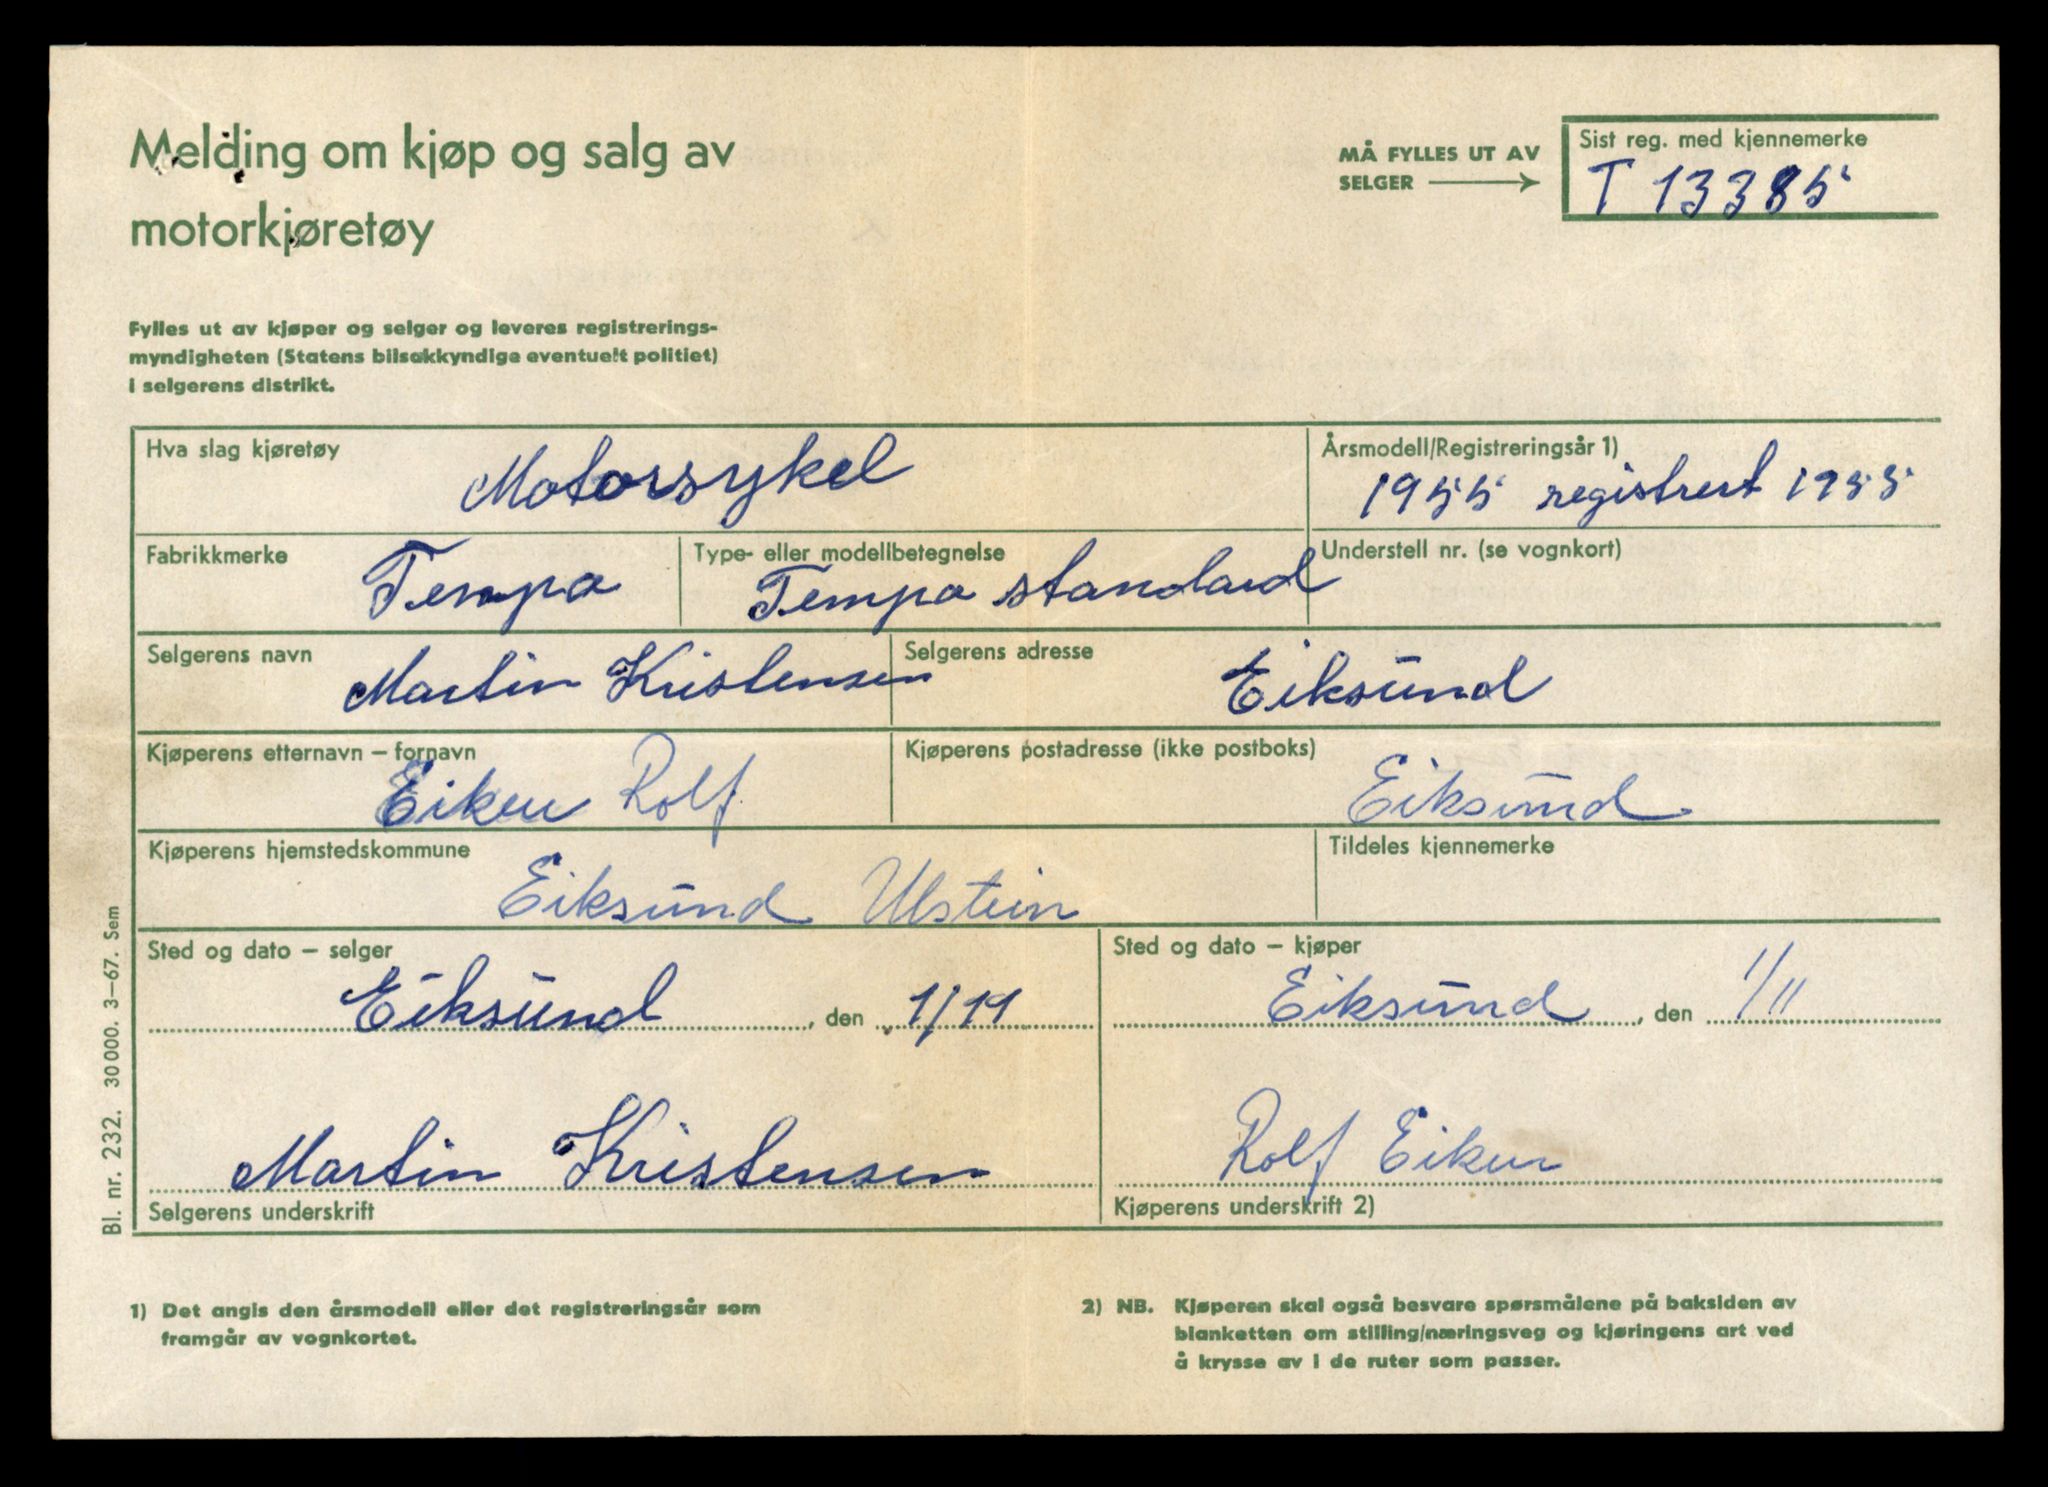 Melding om kjøp og salg av
motorkjøretøy
MÅ FYLLES UT AV
SELGER
Sist reg. med kjennemerke
T 13385
Fylles ut av kjøper og selger og leveres registrerings-
myndigheten (Statens bilsakkyndige eventuelt politiet)
i selgerens distrikt.
Hva slag kjøretøy
Motorsykel
Årsmodell/Registreringsår 1)
1955 registrert 1955
Fabrikkmerke
Tempo
Type- eller modellbetegnelse
Tempo standard
Understell nr. (se vognkort)
Selgerens navn
Martin Kristensen
Selgerens adresse
Eiksund
Kjøperens etternavn – fornavn
Eiken Rolf
Kjøperens postadresse (ikke postboks)
Eiksund
Kjøperens hjemstedskommune
Eiksund Ulstein
Tildeles kjennemerke
Sted og dato – selger
Eiksund, den 1/11
Sted og dato – kjøper
Eiksund, den 1/11
Martin Kristensen
Selgerens underskrift
Rolf Eiken
Kjøperens underskrift 2)
Bl. nr. 232. 30000. 3–67. Sem
1) Det angis den årsmodell eller det registreringsår som
framgår av vognkortet.
2) NB. Kjøperen skal også besvare spørsmålene på baksiden av
blanketten om stilling/næringsveg og kjøringens art ved
å krysse av i de ruter som passer.